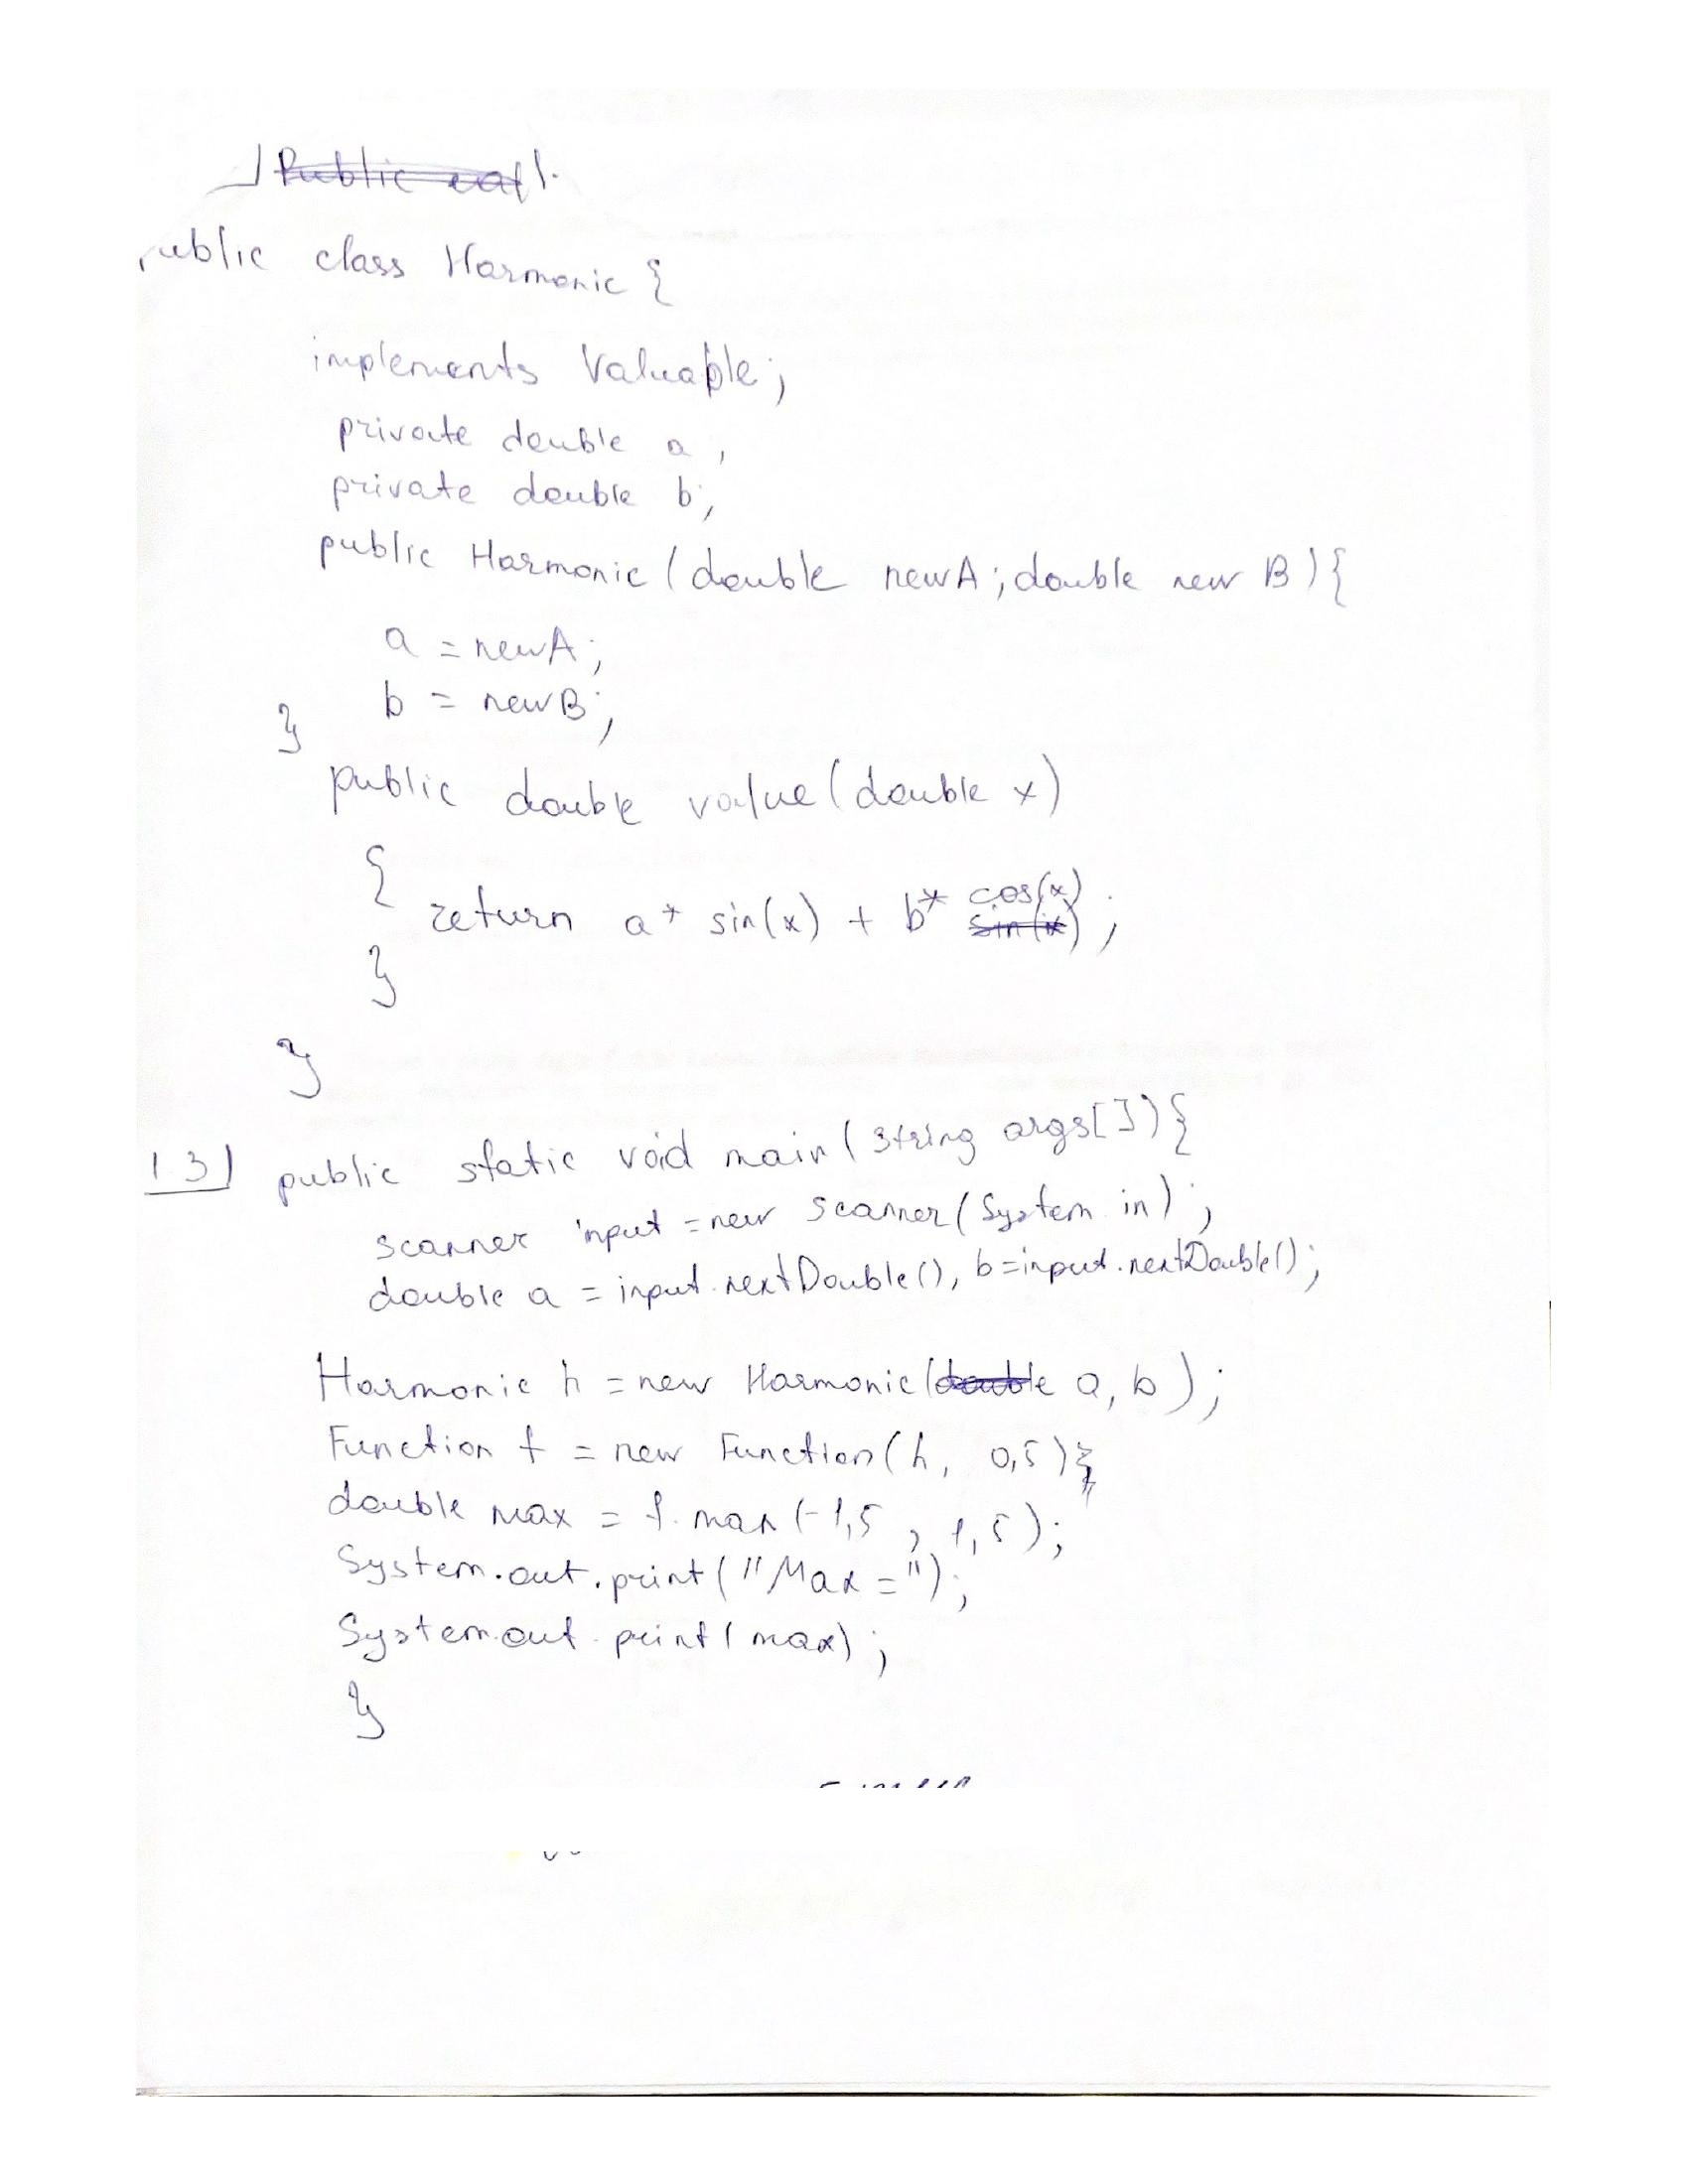 public class Harmonic {
implements Valuable;
private double a,
private double b;
public Harmonic (double newA; double new B) {
a = newA;
b = newB;
}
public double value (double x)
{
return a * sin(x) + b * cos(x) ;
}
}
1.3) public static void main (string args[]) {
scanner input = new scanner (System.in) ;
double a = input.nextDouble(), b = input.nextDouble();
Harmonic h = new Harmonic (a, b) ;
Function f = new Function (h, 0,5);
double max = f.max (-1,5 , 1,5);
System.out.print ("Max =");
System.out.print ( max) ;
}